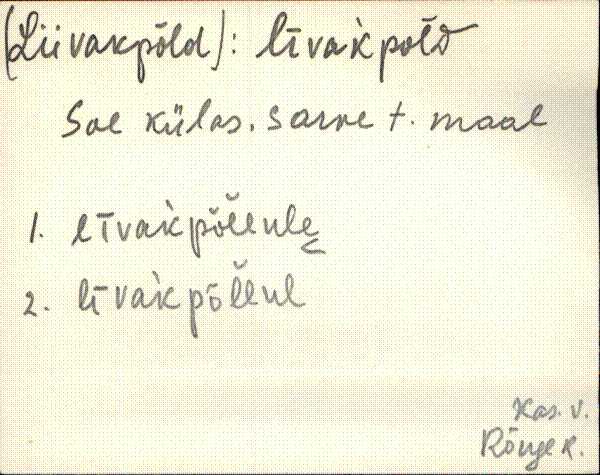 (Liivakpõld): līvak̀põld
Soe külas, Sarve t. maal
1. līvak̀põllule
2. līvak̀põllul
Kas. v.
Rõuge k.